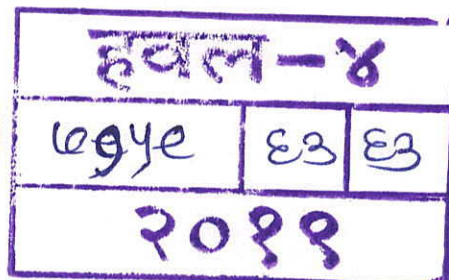 हवल-४
७१५९ ६३ ६३
२०११